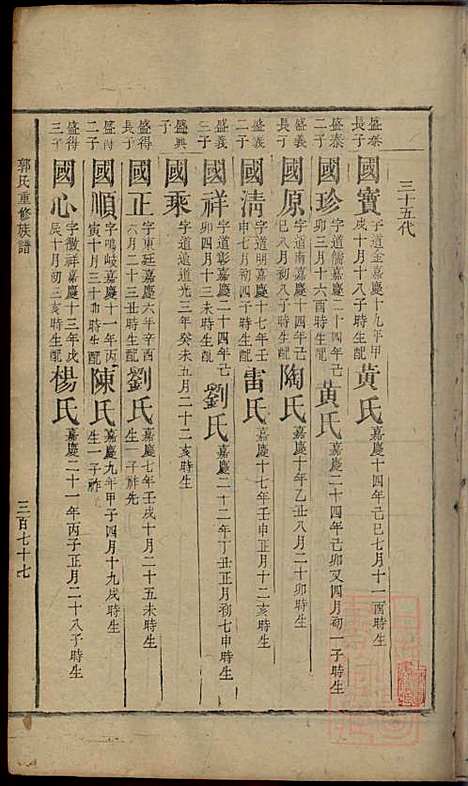 三十五代
盛泰長子 國寶 字道金嘉慶十九年甲戌十月十八子時生配 黃氏 嘉慶十四年己巳七月十一酉時生
盛泰二子 國珍 字道儒嘉慶二十四年己卯三月十六酉時生配 黃氏 嘉慶二十四年己卯又四月初一子時生
盛義長子 國原 字道南嘉慶十四年己巳八月初八子時生配 陶氏 嘉慶十年乙丑八月二十卯時生
盛義二子 國清 字道明嘉慶十七年壬申七月初四子時生配 雷氏 嘉慶十七年壬申正月十二亥時生
盛義三子 國祥 字道彰嘉慶二十四年己卯四月十三未時生配 劉氏 嘉慶二十二年丁丑正月初七申時生
盛興子 國乘 字道遠道光三年癸未五月二十二亥時生
盛得長子 國正 字東廷嘉慶六年辛酉六月二十三丑時生配 劉氏 嘉慶七年壬戌十月二十五未時生 生一子祚先
盛得二子 國順 字鳴岐嘉慶十一年丙寅十月三十卯時生配 陳氏 嘉慶九年甲子四月十九戌時生 生一子祚
盛得三子 國心 字徵祥嘉慶十三年戊辰十月初三亥時生配 楊氏 嘉慶二十一年丙子正月二十八子時生
郭氏重修族譜
三百七十七